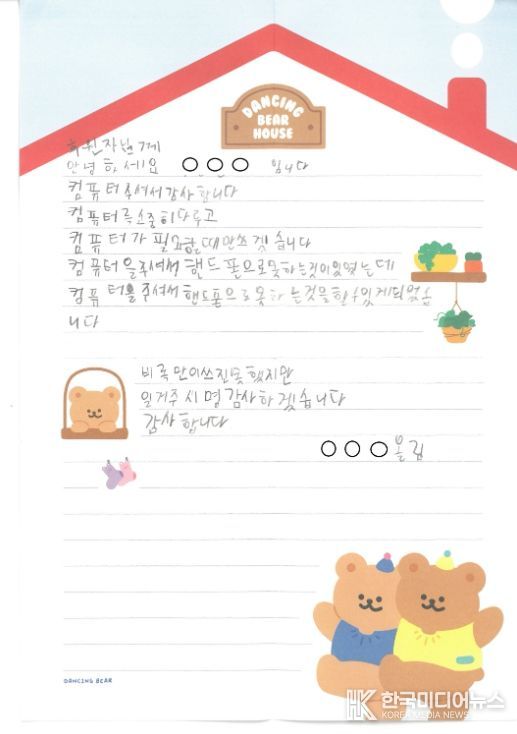 DANCING
BEAR
HOUSE
후원자님께
안녕하세요 ○○○ 입니다
컴퓨터주셔서감사합니다
컴퓨터륵소중히다루고
컴퓨터가 필요할때만쓰겟습니다
컴퓨터을주셔서 핸드폰으로못하는것이있었는데
컴퓨터를주셔서핸드폰으로못하는것을할수있게되었습
니다
비록만이쓰진못했지만
일거주시명감사하겟습니다
감사합니다
○○○올림
DANCING BEAR
HK 한국미디어뉴스
KOREA MEDIA NEWS